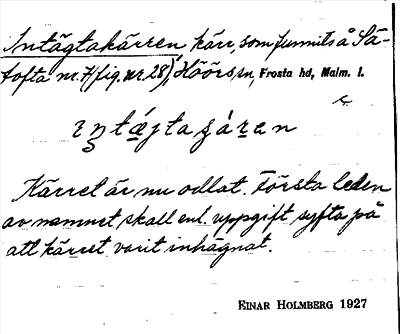 Intägtakärren, kärr, som funnits å Sä-
tofta nr. 7 (fig. nr. 28), Höörs sn, Frosta hd, Malm. l.
Kärret är nu odlat. Första leden
av namnet skall enl. uppgift syfta på
att kärret varit inhägnat.
EINAR HOLMBERG 1927